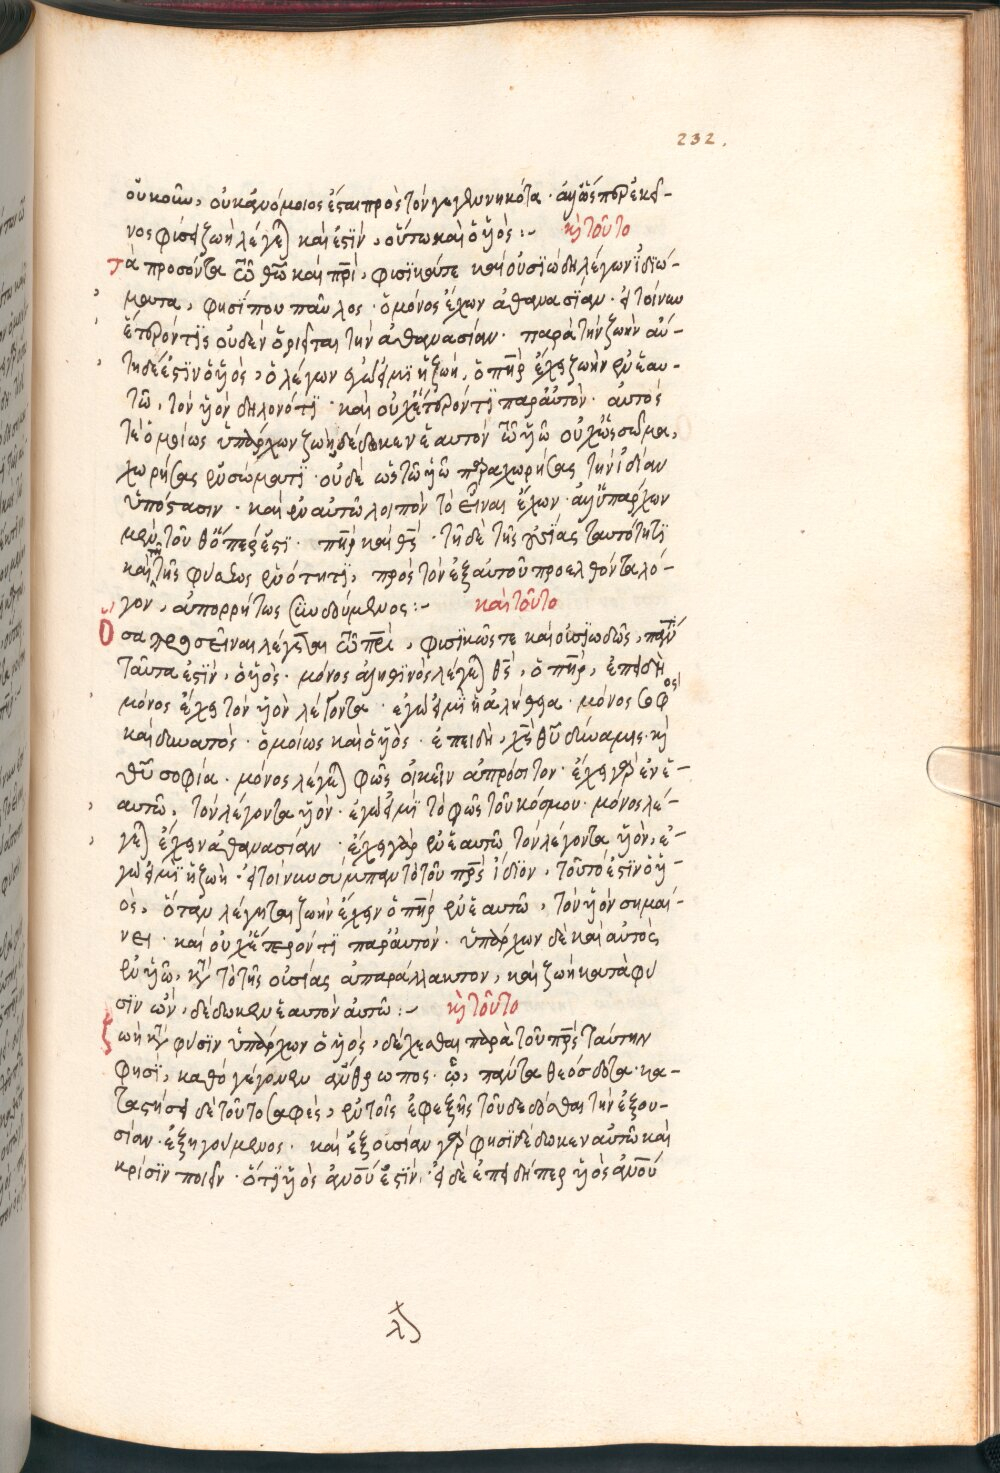 232.
οὐκοῦν, οὐκ ἀνόμοιος ἔσται πρὸς τὸν γεγεννηκότα· ἀλλ' ὥσπερ ἐκεῖ-
νος φύσει ζωὴ λέγεται καὶ ἐστὶν, οὕτω καὶ ὁ υἱός :- καὶ τοῦτο
τὰ προσόντα τῶ θῶ καὶ πρὶ, φυσικῶς τε καὶ οὐσιωδῶς λέγων ἰδιώ-
ματα, φησί που παῦλος· ὁ μόνος ἔχων ἀθανασίαν· εἰ τοίνυν
ἕτερόν τϊ οὐδὲν ὁρισται τὴν ἀθανασίαν· παρὰ τὴν ζωὴν αὐ-
τὴ δέ ἐστιν ὁ υἱὸς, ὁ λέγων ἐγώ εἰμϊ ἡ ζωή, ὁ πηρ ἔχει ζωὴν ἐν ἑαυ-
τῶ, τὸν υἱὸν δηλονότϊ· καὶ οὐχ ἕτερόν τϊ παρ' αὐτόν· αὐτός
τε ὁμοίως ὑπάρχων ζωὴ δέδωκεν ἑαυτὸν τῶ υἱῶ οὐχ ὡς σῶμα,
χωρήσας ἐν σώματϊ· οὐδὲ ὡς τῶ υἱῶ παραχωρήσας τὴν ἰδίαν
ὑπόστασιν· καὶ ἐν αὐτῶ λοιπὸν τὸ εἶναι ἔχων· ἀλλ' ὑπάρχων
μὲν τοῦθ' ὅπερ ἐστϊ· πηρ καὶ θς· τῇ δὲ τῆς οὐσίας ταυτότητϊ
καὶ τῇ τῆς φύσεως ἑνότητϊ, πρὸς τὸν ἐξ αὐτοῦ προελθόντα λό-
γον, ἀπορρήτως συνδούμενος :- καὶ τοῦτο
Ὅσα προσεῖναι λέγεται τῶ πρὶ, φυσϊκῶς τε καὶ οὐσϊωδῶς, πάντα
ταῦτα ἐστϊν, ὁ υἱός· μόνος ἀληθινὸς λέγεται θς, ὁ πηρ, ἐπειδὴ
μόνος ἔχει τὸν υἱὸν λέγοντα· ἐγώ εἰμϊ ἡ ἀλήθεια· μόνος σοφὸς
καὶ δυνατός· ὁμοίως καὶ ὁ υἱὸς· ἐπειδὴ, χς θυ δύναμις· καὶ
θυ σοφία· μόνος λέγεται φῶς οἰκεῖν ἀπρόσιτον· ἔχει γὰρ ἐν ἑ-
αυτῶ, τὸν λέγοντα υἱὸν· ἐγώ εἰμϊ τὸ φῶς τοῦ κόσμου· μόνος λέ-
γεται ἔχειν ἀθανασίαν· ἔχει γὰρ ἐν ἑαυτῶ τὸν λέγοντα υἱὸν, ἐ-
γώ εἰμϊ ἡ ζωὴ· εἰ τοίνυν σύμπαν τὸ τοῦ πρς ἴδϊον, τοῦτο ἐστϊν ὁ υἱ-
ὸς, ὅταν λέγηται ζωὴν ἔχειν ὁ πηρ ἐν ἑαυτῶ, τὸν υἱὸν σημαί-
νει· καὶ οὐχ ἕτερόν τϊ παρ' αὐτόν· ὑπάρχων δὲ καὶ αὐτὸς
ἐν υἱῶ, κατὰ τὸ τῆς οὐσίας ἀπαράλλακτον, καὶ ζωὴ κατὰ φύ
σϊν ὢν, δέδωκεν ἑαυτὸν αὐτῶ :- καὶ τοῦτο
ζωὴ κατὰ φύσϊν ὑπάρχων ὁ υἱὸς, δέχεσθαι παρὰ τοῦ πρς ταύτην
φησϊ, καθὸ γέγονεν ἄνθρωπος· ὧ, πάντα θεόσδοτα· κα-
ταστήσει δὲ τοῦτο σαφὲς, ἐν τοῖς ἐφεξῆς τοῦ δεδόσθαι τὴν ἐξου-
σίαν· ἐξηγούμενος· καὶ ἐξουσίαν γάρ φησϊ δέδωκεν αὐτῶ καὶ
κρίσϊν ποιεῖν· ὅτϊ υἱὸς ἀνου ἐστϊν· εἰ δὲ ἐπειδήπερ υἱὸς ἀνου